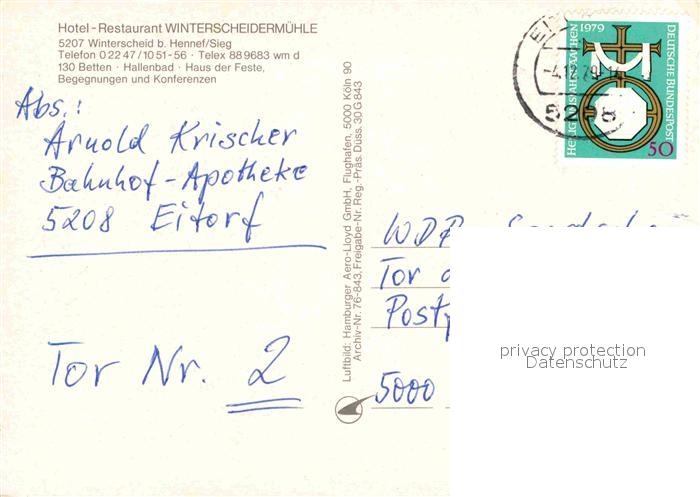 Hotel-Restaurant WINTERSCHEIDERMÜHLE
5207 Winterscheid b. Hennef/Sieg
Telefon 0 22 47 / 10 51-56 · Telex 88 9683 wm d
130 Betten · Hallenbad · Haus der Feste,
Begegnungen und Konferenzen
Abs.:
Arnold Krischer
Bahnhof-Apotheke
5208 Eitorf
Tor Nr. 2
Luftbild: Hamburger Aero-Lloyd GmbH, Flughafen, 5000 Köln 90
Archiv-Nr. 76-843, Freigabe-Nr. Reg.-Präs. Düss. 30 G 843
1979
DEUTSCHE BUNDESPOST
50
5208
WDR
Tor
5000
privacy protection
Datenschutz